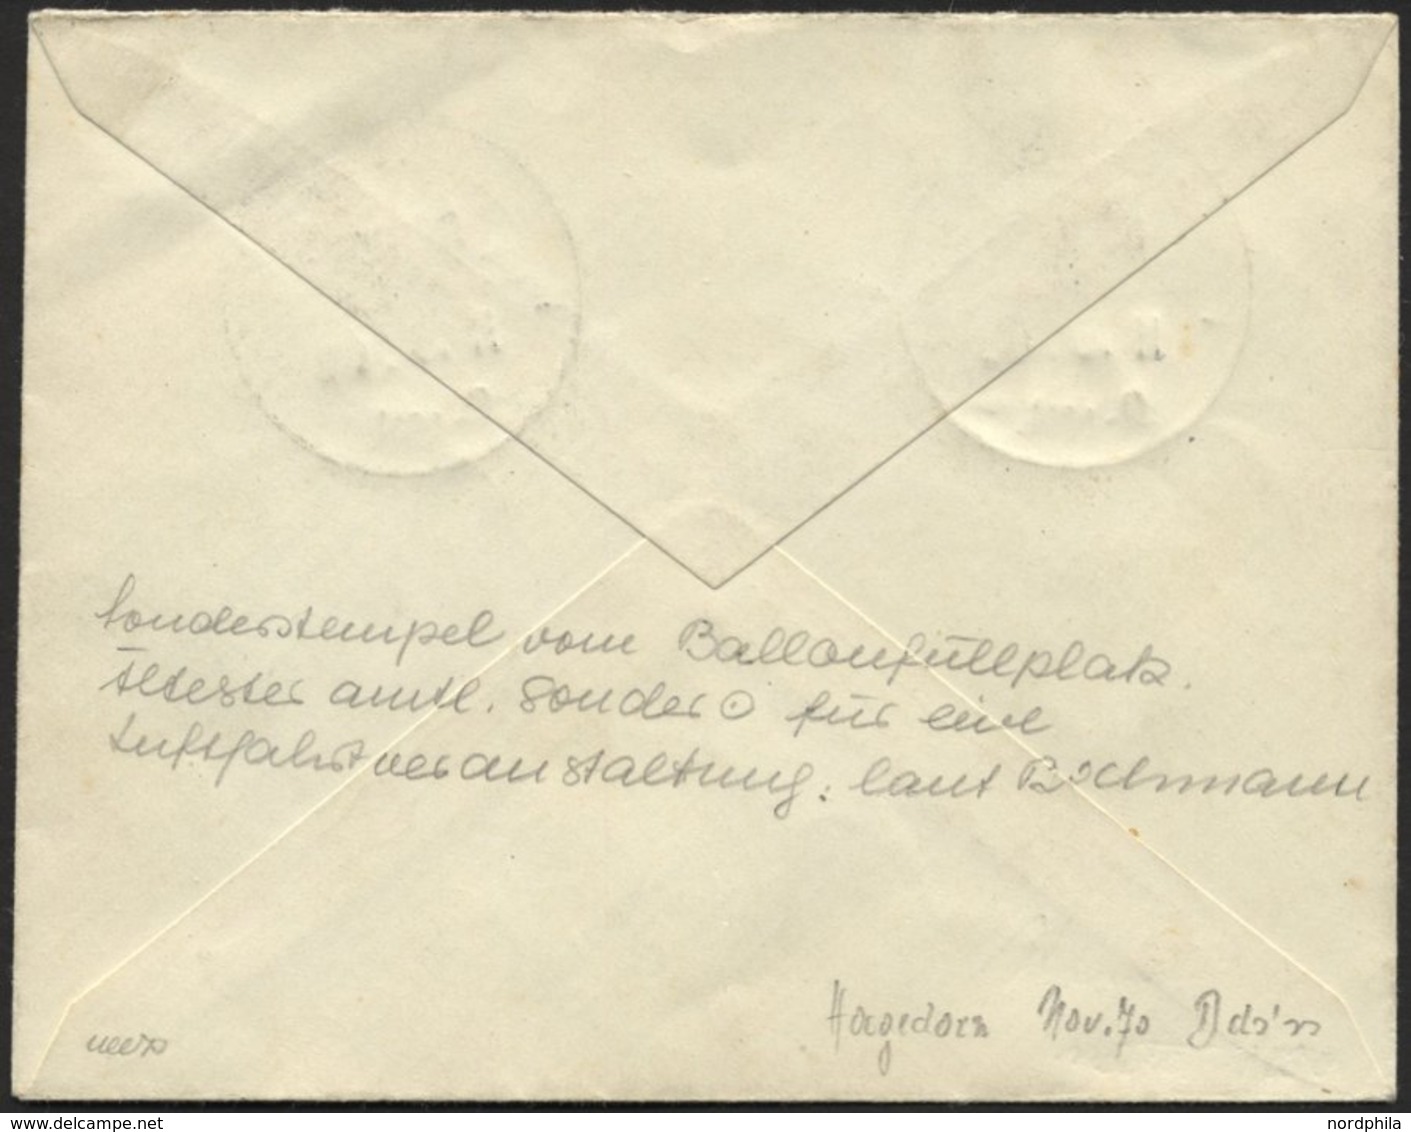 Sonderstempel vom Ballonfüllplatz.
Ältester amtl. Sonder ⊙ für eine
Luftfahrtveranstaltung: laut Bochmann
Hagedorn Nov. 70
delcampe.net
nordphila